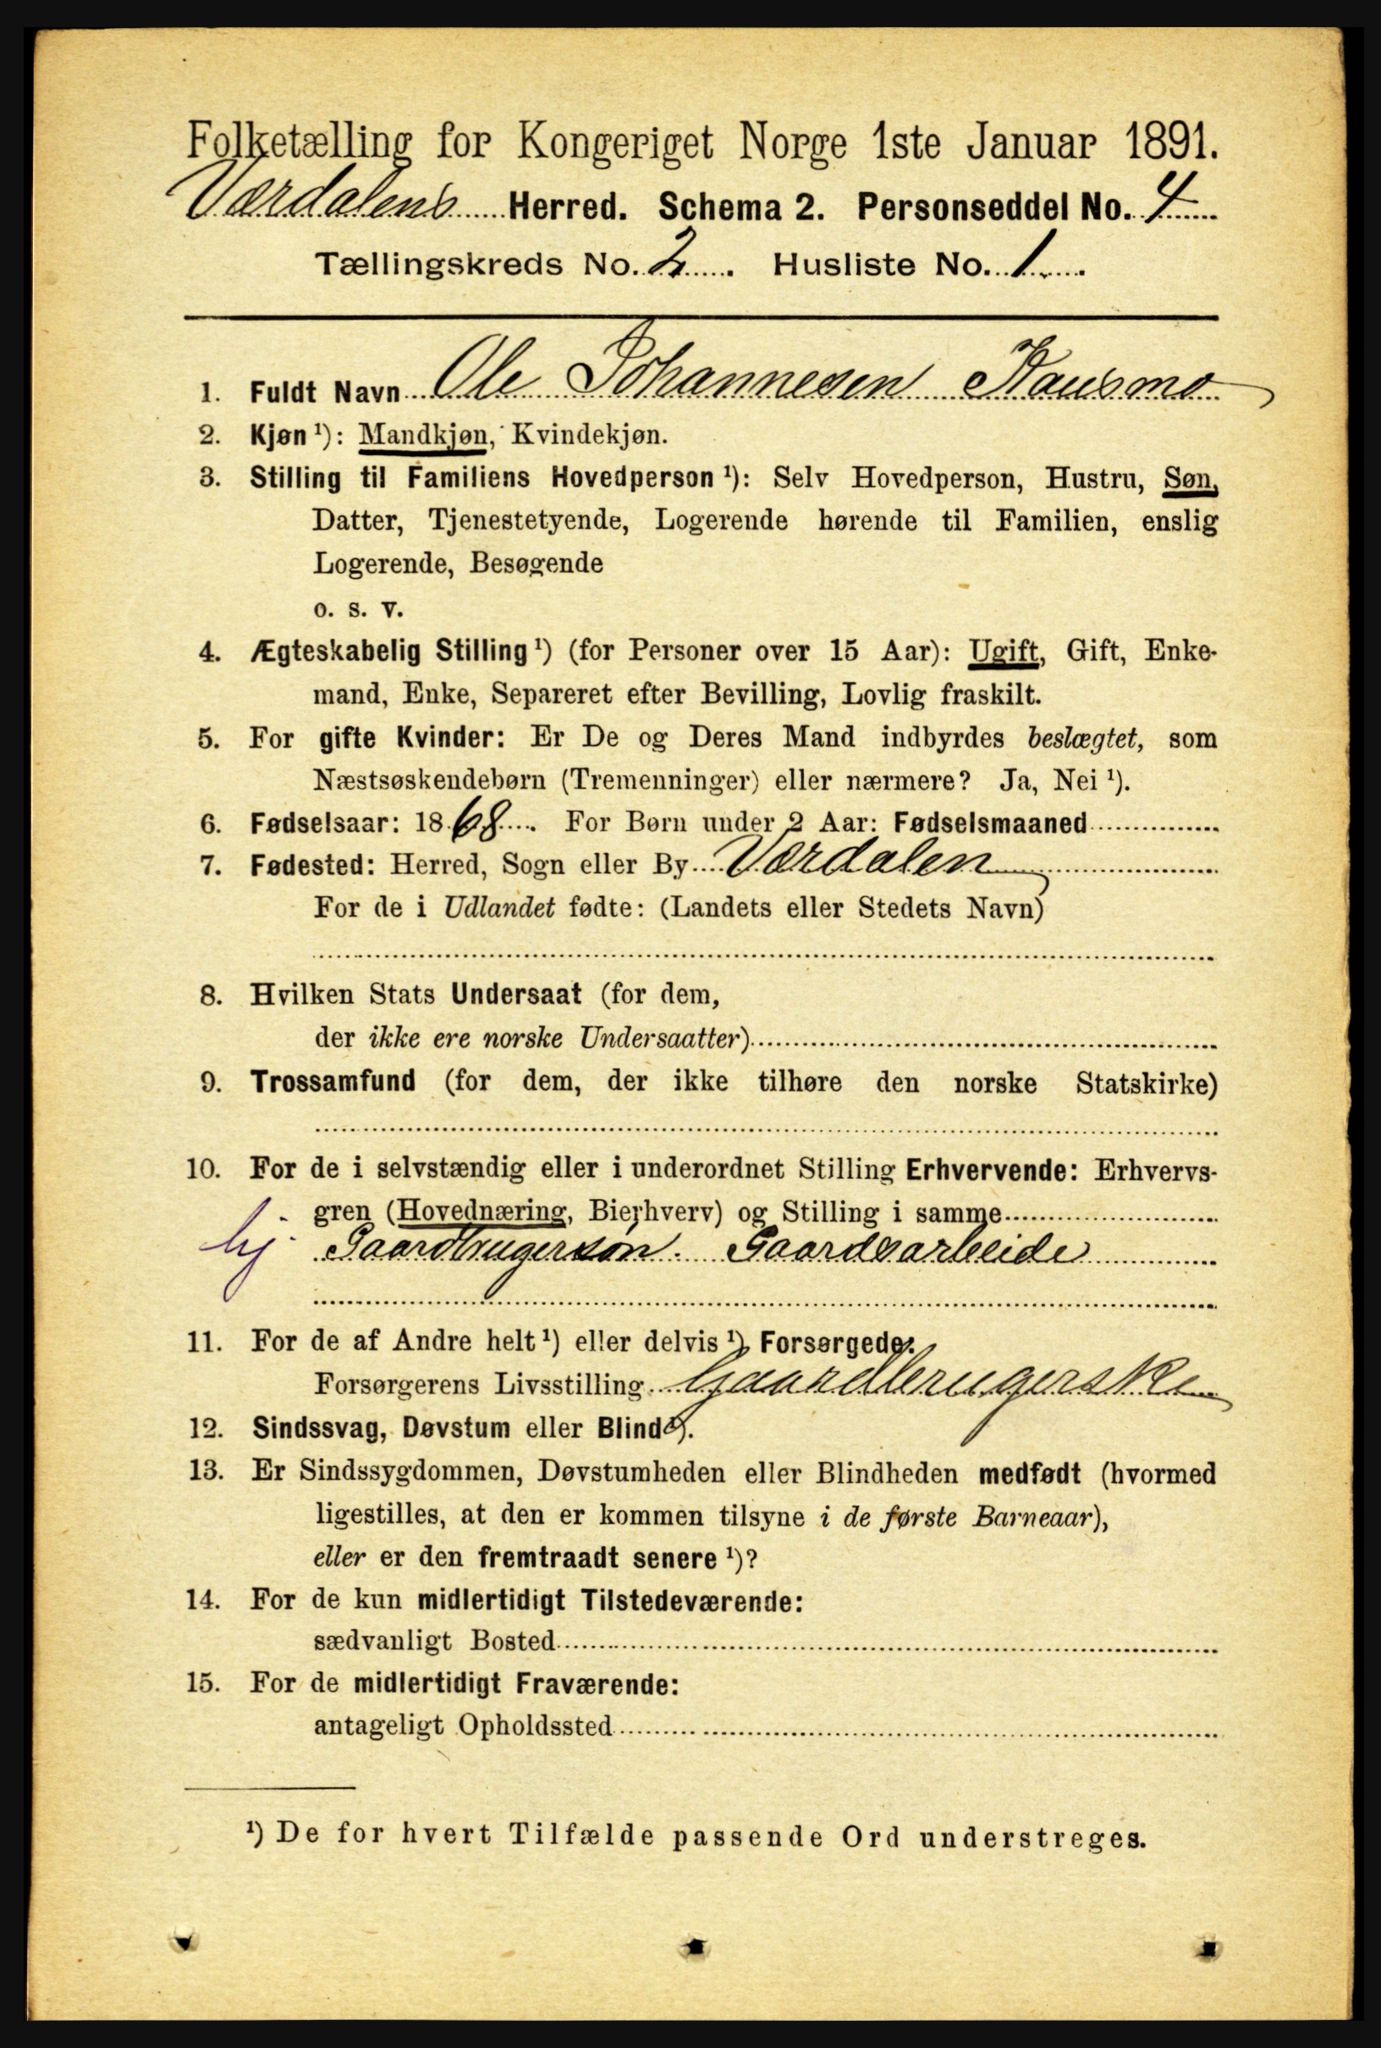 Folketælling for Kongeriget Norge 1ste Januar 1891.
Værdalens Herred. Schema 2. Personseddel No. 4
Tællingskreds No. 2. Husliste No. 1
1. Fuldt Navn Ole Johannesen Kausmo
2. Kjøn ¹): Mandkjøn, Kvindekjøn.
3. Stilling til Familiens Hovedperson ¹): Selv Hovedperson, Hustru, Søn,
Datter, Tjenestetyende, Logerende hørende til Familien, enslig
Logerende, Besøgende
o. s. v.
4. Ægteskabelig Stilling ¹) (for Personer over 15 Aar): Ugift, Gift, Enke-
mand, Enke, Separeret efter Bevilling, Lovlig fraskilt.
5. For gifte Kvinder: Er De og Deres Mand indbyrdes beslægtet, som
Næstsøskendebørn (Tremenninger) eller nærmere? Ja, Nei ¹).
6. Fødselsaar: 1868. For Børn under 2 Aar: Fødselsmaaned
7. Fødested: Herred, Sogn eller By Værdalen
For de i Udlandet fødte: (Landets eller Stedets Navn)
8. Hvilken Stats Undersaat (for dem,
der ikke ere norske Undersaatter)
9. Trossamfund (for dem, der ikke tilhøre den norske Statskirke)
10. For de i selvstændig eller i underordnet Stilling Erhvervende: Erhvervs-
gren (Hovednæring, Bierhverv) og Stilling i samme
hj. Gaardbrugersøn. Gaardsarbeide
11. For de af Andre helt ¹) eller delvis ¹) Forsørgede:
Forsørgerens Livsstilling Gaardbrugerske
12. Sindssvag, Døvstum eller Blind ¹).
13. Er Sindssygdommen, Døvstumheden eller Blindheden medfødt (hvormed
ligestilles, at den er kommen tilsyne i de første Barneaar),
eller er den fremtraadt senere ¹)?
14. For de kun midlertidigt Tilstedeværende:
sædvanligt Bosted
15. For de midlertidigt Fraværende:
antageligt Opholdssted
¹) De for hvert Tilfælde passende Ord understreges.